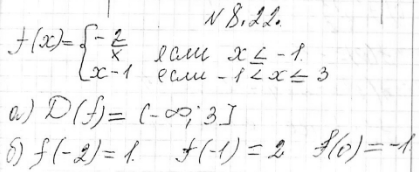 N 8.22.
f(x)= { -2/x если x ≤ -1.
x-1 если -1 < x ≤ 3
а) D(f)= (-∞; 3]
б) f(-2)=1. f(-1)=2 f(0)=-1.